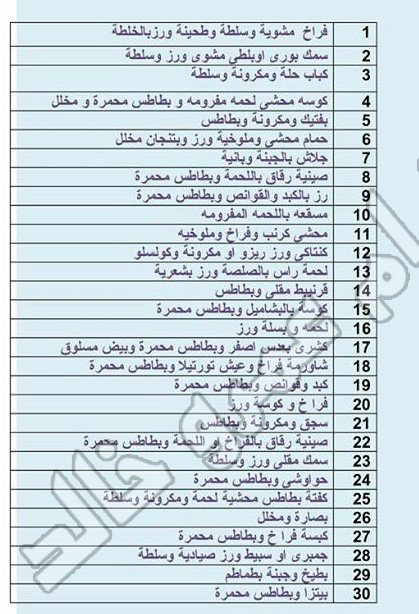 1 فراخ مشوية وسلطة وطحينة ورزبالخلطة
2 سمك بورى اوبلطى مشوى ورز وسلطة
3 كباب حلة ومكرونة وسلطة
4 كوسه محشي لحمه مفرومه و بطاطس محمرة و مخلل
5 بفتيك ومكرونة وبطاطس
6 حمام محشي وملوخية ورز وبتنجان مخلل
7 جلاش بالجبنة وبانية
8 صينية رقاق باللحمة وبطاطس محمرة
9 رز بالكبد والقوانص وبطاطس محمرة
10 مسقعه باللحمه المفرومه
11 محشى كرنب وفراخ وملوخيه
12 كنتاكى ورز ريزو او مكرونة وكولسلو
13 لحمة راس بالصلصة ورز بشعرية
14 قرنبيط مقلى وبطاطس
15 كوسة بالبشاميل وبطاطس محمرة
16 لحمه و بسلة ورز
17 كشرى بعدس اصفر وبطاطس محمرة وبيض مسلوق
18 شاورمة فراخ وعيش تورتيلا وبطاطس محمرة
19 كبد وقوانص وبطاطس محمرة
20 فرا خ و كوسة ورز
21 سجق ومكرونة وبطاطس
22 صينية رقاق بالفراخ او اللحمة وبطاطس محمرة
23 سمك مقلى ورز وسلطة
24 حواوشي وبطاطس محمرة
25 كفتة بطاطس محشية لحمة ومكرونة وسلطة
26 بصارة ومخلل
27 كبسة فرا خ وبطاطس محمرة
28 جمبرى او سبيط ورز صيادية وسلطة
29 بطيخ وجبنة بطماطم
30 بيتزا وبطاطس محمرة
خالد